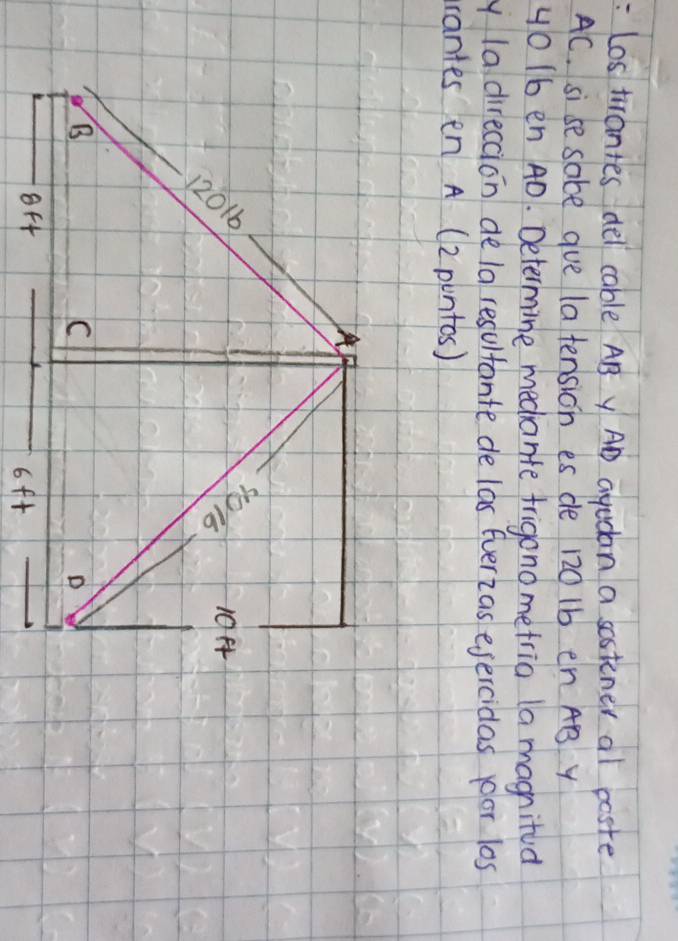 : Los tirantes del cable AB y AD ayudan a sostener al poste
AC. si se sabe que la tensión es de 120 lb en AB y
40 lb en AD. Determine mediante trigonometría la magnitud
y la dirección de la resultante de las fuerzas ejercidas por los
irantes en A (2 puntos)
A
120 lb
40 lb
10 ft
B
C
D
8 ft
6 ft